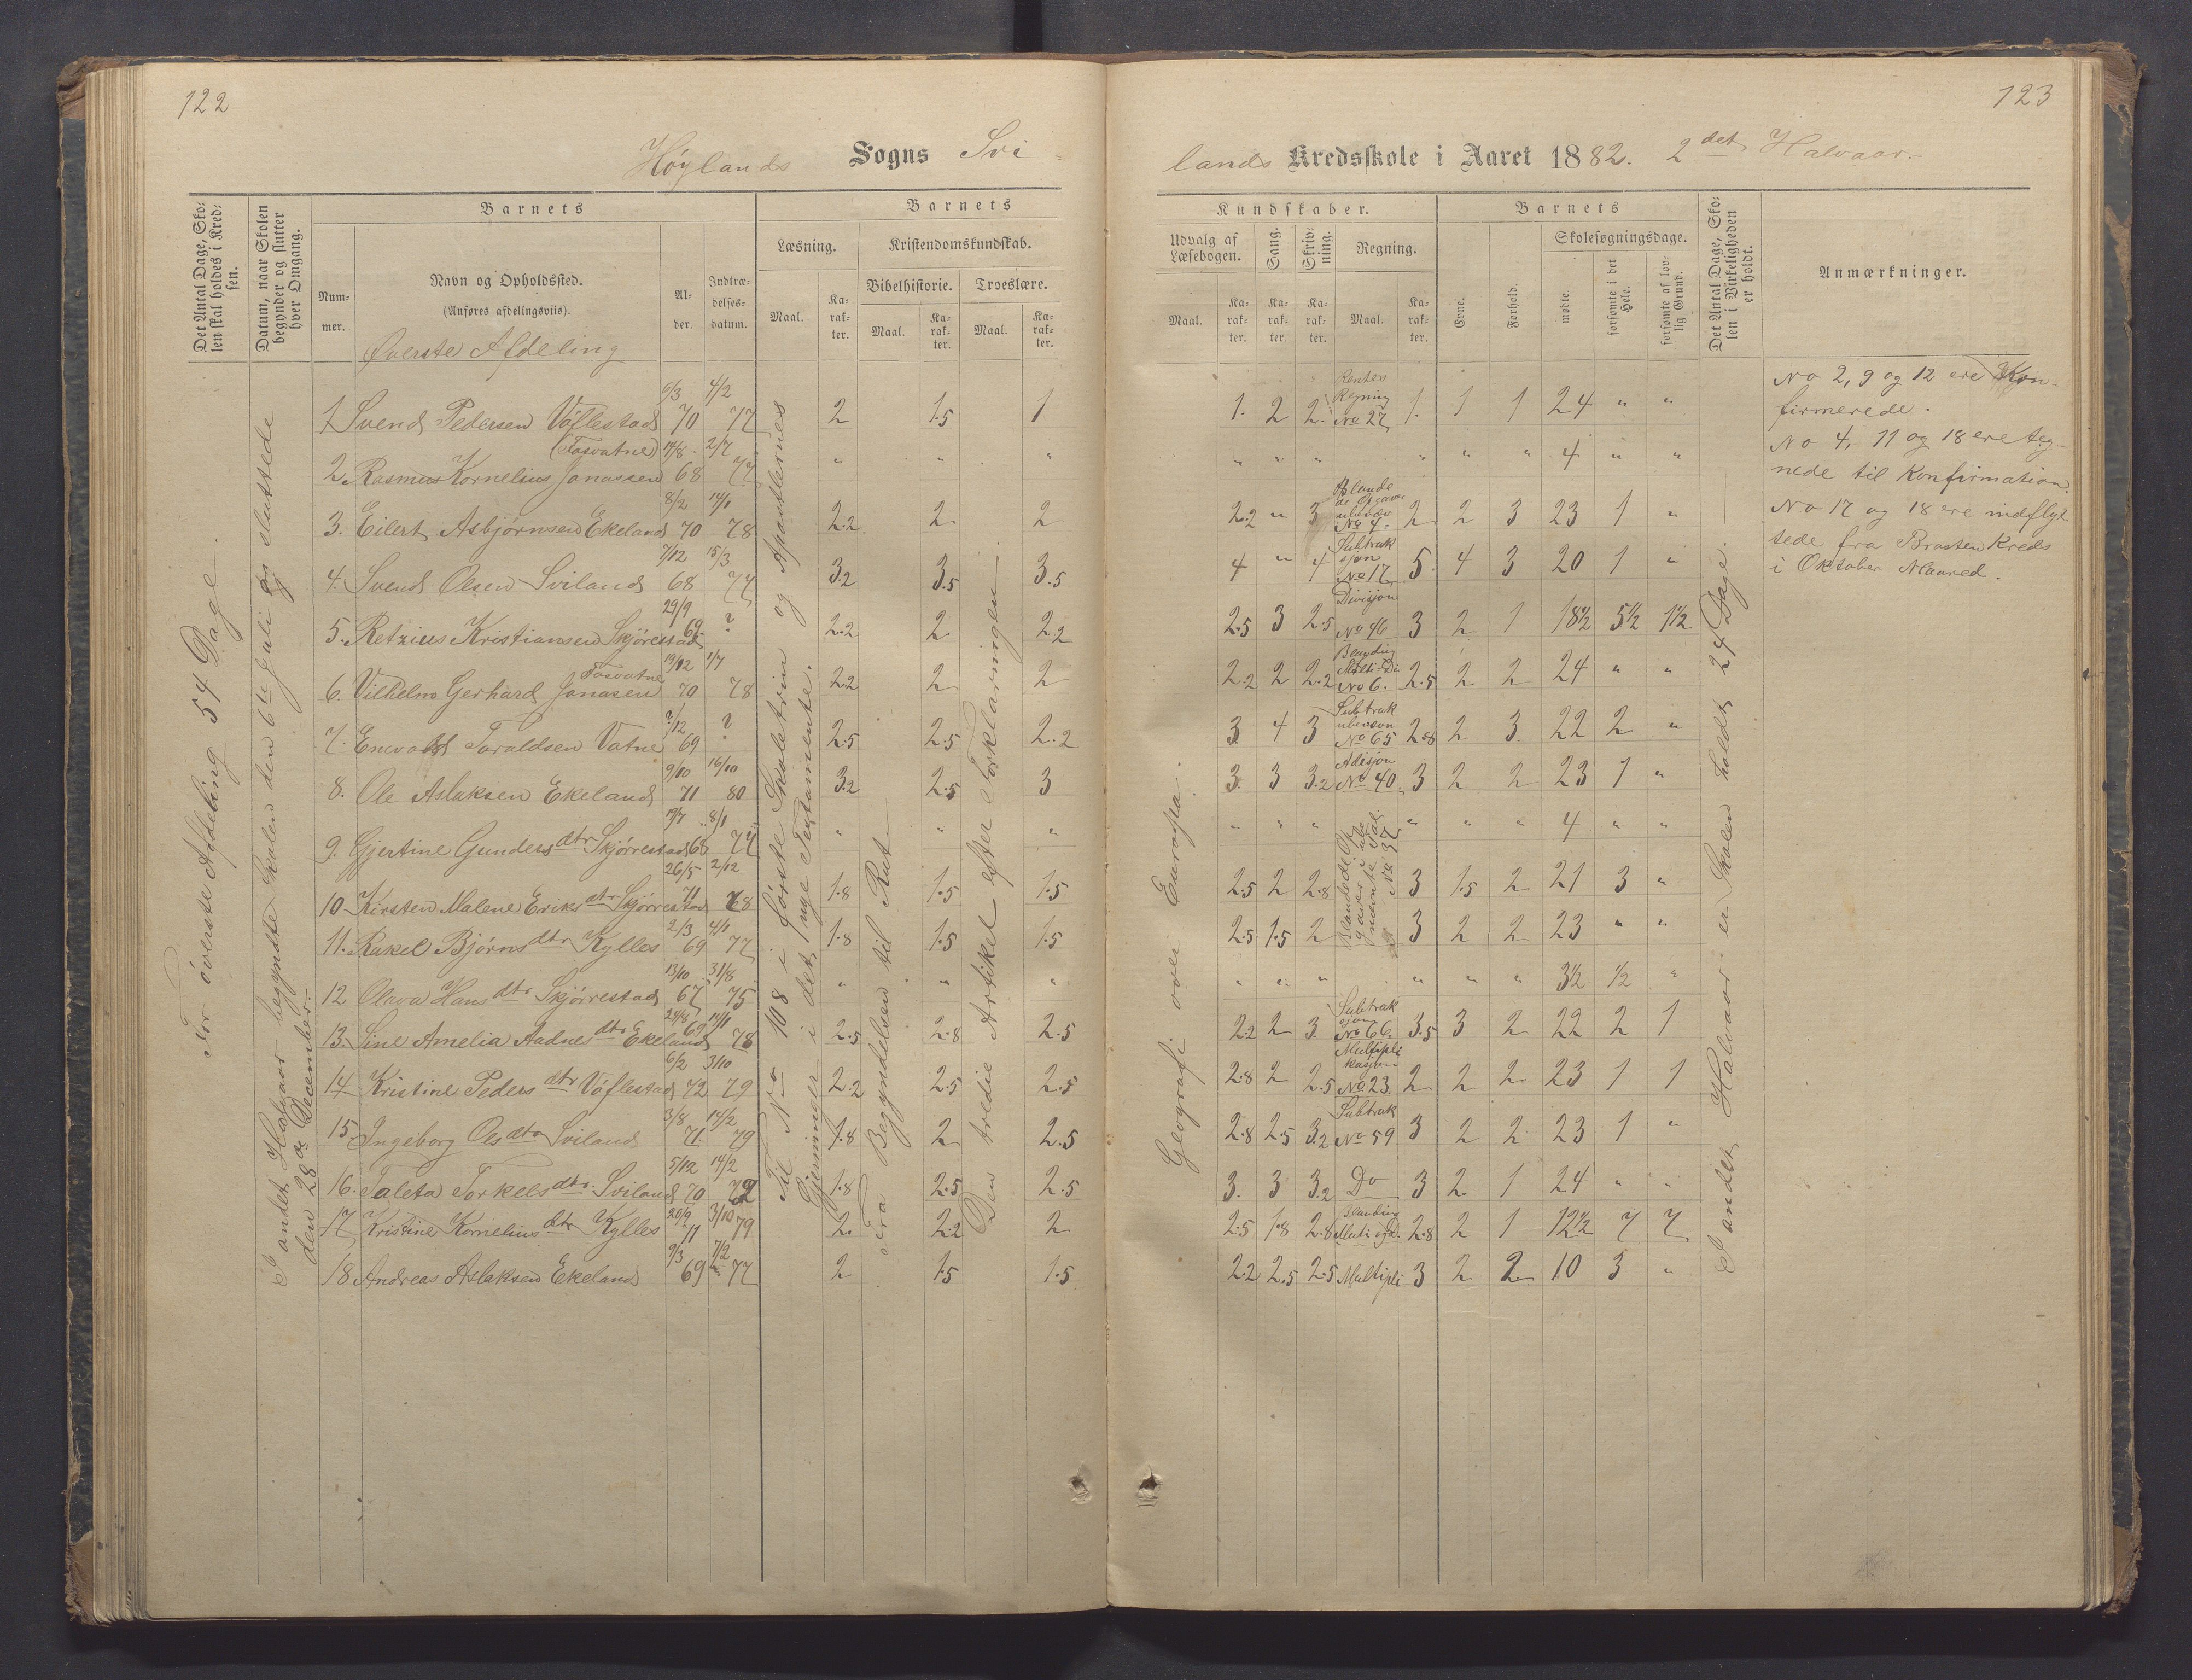 122
Höylands Sogns Svi-
Det Antal Dage, Sko-
len skal holdes i Kred-
sen.
Datum, naar Skolen
begynder og slutter
hver Omgang.
Barnets
Num-
mer.
Navn og Opholdssted.
(Anføres afdelingsviis).
Al-
der.
Indtræ-
delses-
datum.
Barnets
Læsning.
Maal.
Ka-
rak-
ter.
Kristendomskundskab.
Bibelhistorie.
Maal.
Ka-
rak-
ter.
Troeslære.
Maal.
Ka-
rak-
ter.
Øverste Afdeling
For överste Afdeling 54 Dage.
I andet Halvaar begyndte Skolen den 6te Juli og sluttede
den 28de December.
Til No 108 i förste Skoletrin og Apostlernes
Gjerninger i det nye Testamente.
Fra Begyndelsen til Rut
Den tredie Artikel efter Forklaringen
1. Svend Pedersen Vöflestad 6/3 70 4/2 77 2 1.5 1
2. Rasmus Kornelius Jonassen (Fosvatne) 17/8 68 2/7 77 " " "
3. Eilert Asbjørnsen Ekeland 8/2 70 14/1 78 2.2 2 2
4. Svend Olsen Sviland 7/12 68 15/3 77 3.2 3.5 3.5
5. Retzius Kristiansen Skjörestad 29/9 69 ? 2.2 2 2.2
6. Vilhelm Gerhard Jonasen Fosvatne 19/12 70 1/7 78 2.2 2 2
7. Enevald Taraldsen Vatne ?/12 69 ? 2.5 2.5 2.2
8. Ole Aslaksen Ekeland 9/10 71 16/10 80 3.2 2.5 3
9. Gjertine Gundersdtr Skjörrestad 19/7 68 8/1 77 " " "
10 Kirsten Malene Eriksdtr Skjörrestad 26/5 71 2/12 78 1.8 1.5 1.5
11. Rakel Bjørnsdtr Kylles 2/3 69 4/1 77 1.8 1.5 1.5
12 Olava Hansdtr Skjörrestad 13/10 67 31/8 75 " " "
13. Sine Amelia Aadnesdtr Ekeland 24/8 69 14/1 78 2.5 2.8 2.5
14 Kristine Pedersdtr Vöflestad 6/2 72 3/10 79 2.2 2.5 2.5
15 Ingeborg Olsdtr Sviland 3/8 71 14/2 79 1.8 2 2.5
16. Taleta Torkelsdtr. Sviland 5/12 70 14/2 79 1.8 2.5 2.5
17 Kristine Korneliusdtr Kylles 20/9 71 3/10 79 2. 2.2 2
18 Andreas Aslaksen Ekeland 9/3 69 7/2 77 2 1.5 1.5
123
lands Kredsskole i Aaret 1882. 2det Halvaar.
Kundskaber.
Udvalg af
Læsebogen.
Maal.
Ka-
rak-
ter.
Sang.
Ka-
rak-
ter.
Skriv-
ning.
Ka-
rak-
ter.
Regning.
Maal.
Ka-
rak-
ter.
Barnets
Evne.
Forhold.
Skolesøgningsdage.
mødte.
forsømte i det
Hele.
forsømte af lov-
lig Grund.
Det Antal Dage, Sko-
len i Virkeligheden
er holdt.
Anmærkninger.
Geografi over Europa.
I andet Halvaar er Skolen holdt 24 Dage.
1. 2 2. Rentes Regning No 27 1. 1 1 24 " "
" " " " " " 4 " "
2.2 " 3 No 4. 2 2 3 23 1 "
4 " 4 Subtraksjon No 17 5. 4 3 20 1 "
2.5 3 2.5 Divisjon No 46 3 2 1 18½ 5½ 1½
2.2 2 2.2 Blanding Multi-Di No 6. 2.5 2. 2 24 " "
3 4 3 Subtrak No 65 2.8 2 3. 22 2 "
3. 3 3.2 Adisjon No 40 3 2 2 23 1 "
" " " " " " 4 " "
2.5 2 2.8 No 37 3 1.5 2 21 3 "
2.5 1.5 2 3 2 2 23 " "
" " " " " " 3½ ½ "
2.2 2 3. Subtraksjon No 66. 3.5 3 2 22 2 1
2.8 2 2.5 Multiplikasjon No 23. 2 2 2 23 1 1
2.8 2.5 3.2 Subtrak No 59 3 2 2 23 1 "
3. 3 3.2 Do 3 2 1 24 " "
2.5 1.8 2.8 Blanding Multi og D. 2.8 2 1 12½ 7 7
2.2 2.5 2.5 Multipli 3 2 2 10 3 "
No 2, 9 og 12 ere Kon-
firmerede.
No 4, 11 og 18 ere teg-
nede til Konfirmation.
No 17 og 18 ere indflyt
tede fra Brasten Kreds
i Oktober Maaned.